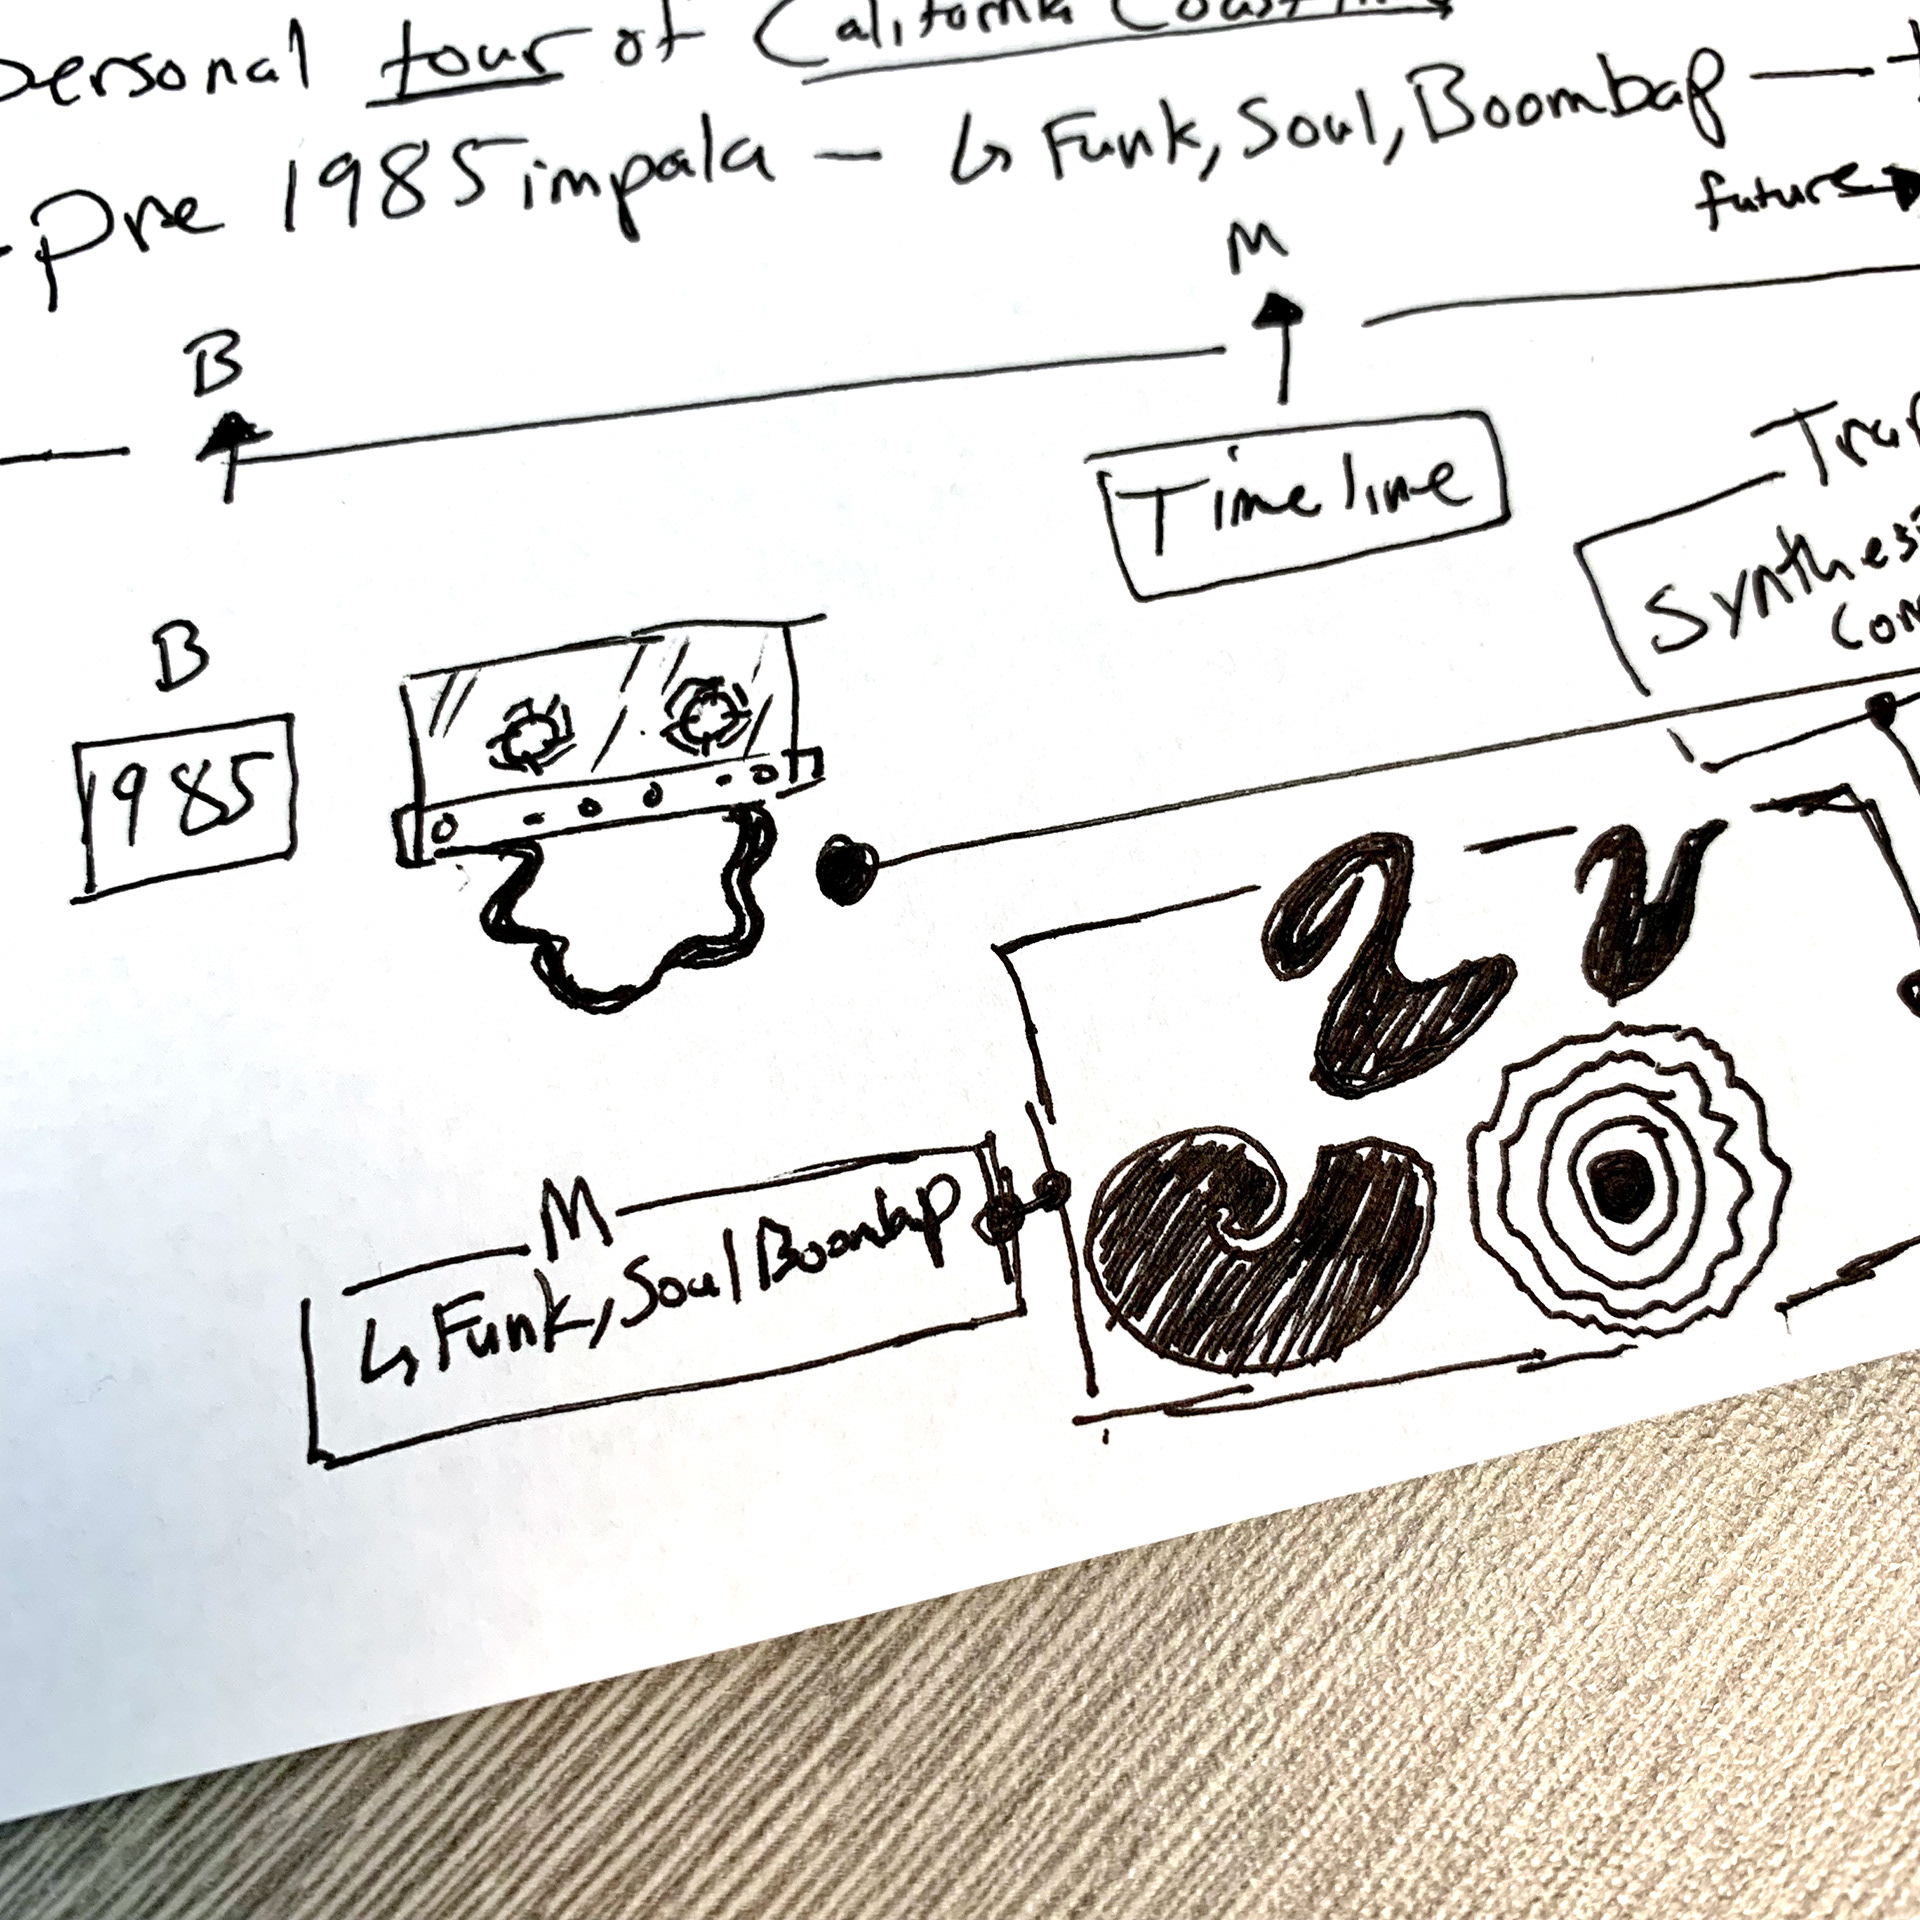 personal tour of California Coastline
- Pre 1985 impala — ↳ Funk, Soul, Boombap —
future
M
B
Timeline
B
1985
M
↳ Funk, Soul Boombap